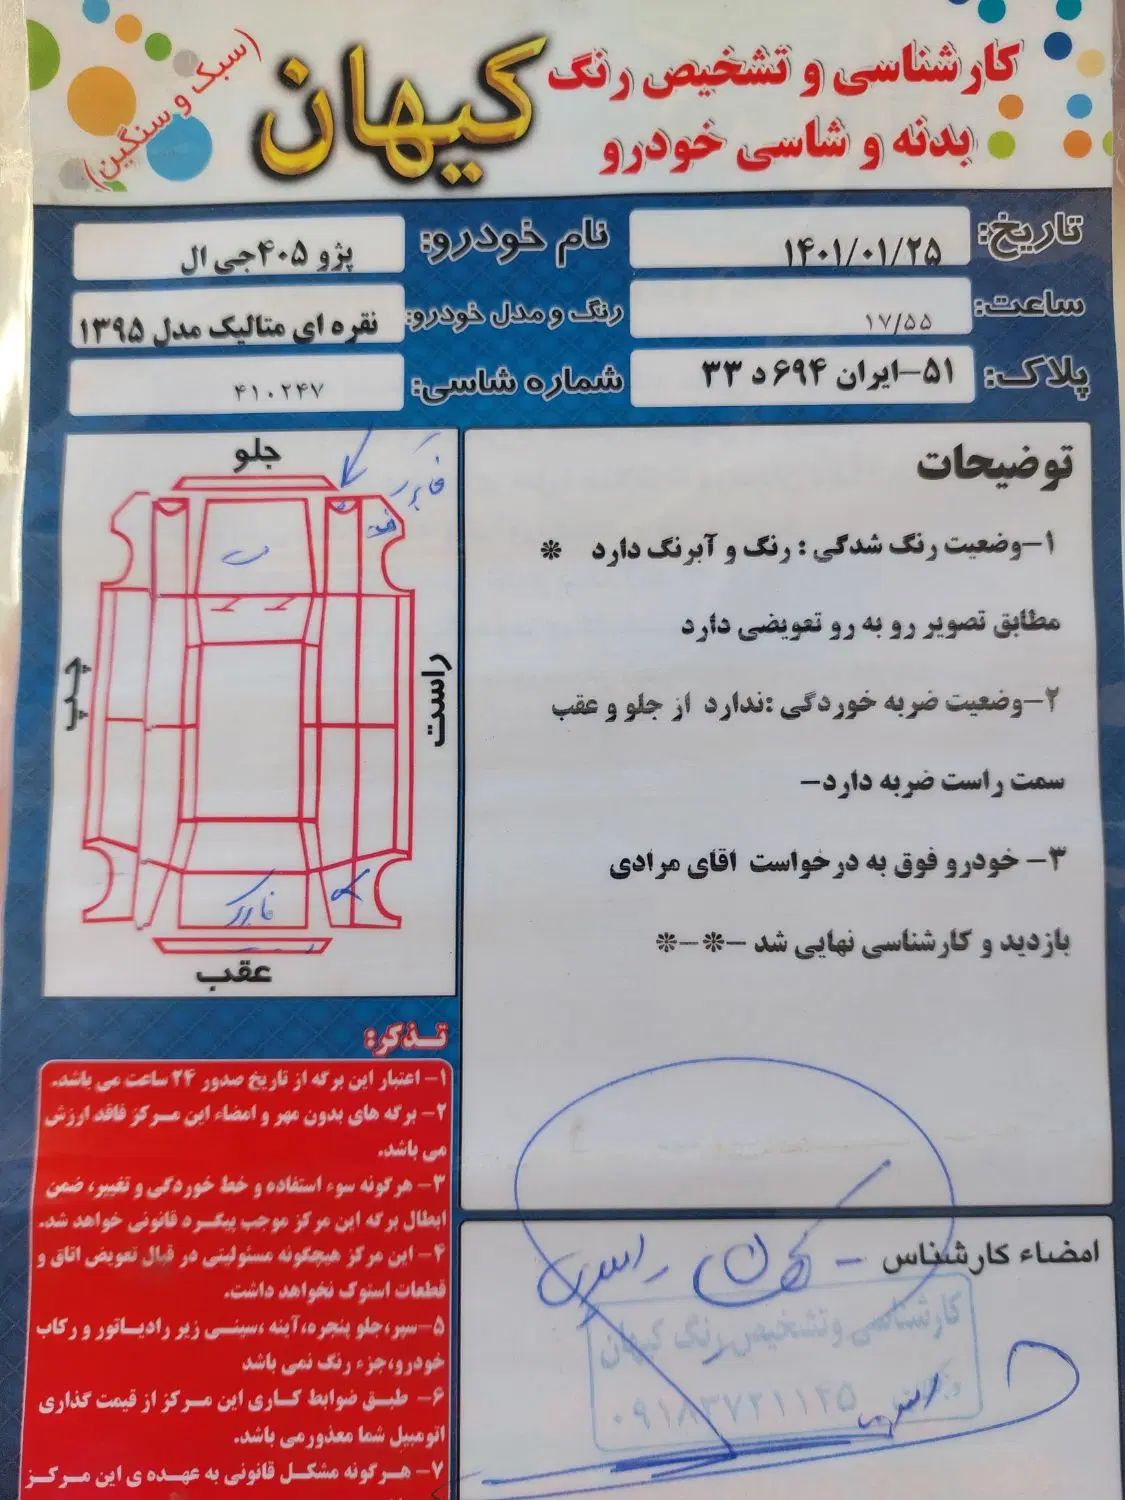 کارشناسی و تشخیص رنگ
بدنه و شاسی خودرو
کیهان
(سبک و سنگین)
تاریخ: ۱۴۰۱/۰۱/۲۵
نام خودرو: پژو ۴۰۵جی ال
ساعت: ۱۷/۵۵
رنگ و مدل خودرو: نقره ای متالیک مدل ۱۳۹۵
پلاک: ۵۱-ایران ۶۹۴ د ۳۳
شماره شاسی: ۴۱۰۲۴۷
توضیحات
۱-وضعیت رنگ شدگی : رنگ و آبرنگ دارد *
مطابق تصویر رو به رو تعویضی دارد
۲-وضعیت ضربه خوردگی :ندارد از جلو و عقب
سمت راست ضربه دارد-
۳- خودرو فوق به درخواست اقای مرادی
بازدید و کارشناسی نهایی شد -*-*
جلو
چپ
راست
عقب
تذکر:
۱- اعتبار این برگه از تاریخ صدور ۲۴ ساعت می باشد.
۲- برگه های بدون مهر و امضاء این مرکز فاقد ارزش
می باشد.
۳- هرگونه سوء استفاده و خط خوردگی و تغییر، ضمن
ابطال برگه این مرکز موجب پیگرد قانونی خواهد شد.
۴- این مرکز هیچگونه مسئولیتی در قبال تعویض اتاق و
قطعات استوک نخواهد داشت.
۵-سپر،جلو پنجره،آینه ،سینی زیر رادیاتور و رکاب
خودرو،جزء رنگ نمی باشد
۶- طبق ضوابط کاری این مرکز از قیمت گذاری
اتومبیل شما معذور می باشد.
۷- هرگونه مشکل قانونی به عهده ی این مرکز
امضاء کارشناس
کارشناسی و تشخیص رنگ کیهان
۰۹۱۸۳۷۲۱۱۲۵